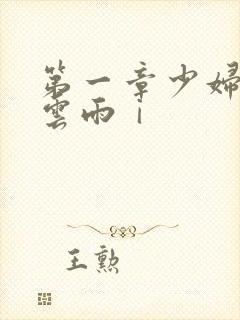 第一章少婦
雲雨｜
王勲